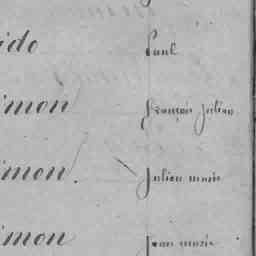 ido Paul
imon François Julien
imon Julien marie
imon Jean marie